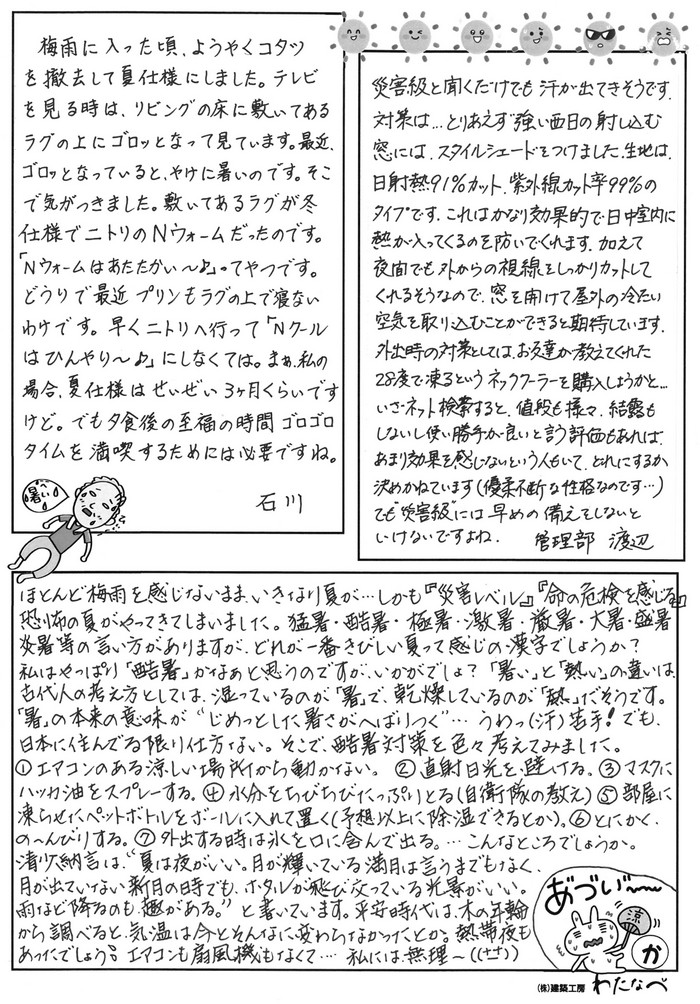 梅雨に入った頃、ようやくコタツ
を撤去して夏仕様にしました。テレビ
を見る時は、リビングの床に敷いてある
ラグの上にゴロッとなって見ています。最近、
ゴロッとなっていると、やけに暑いのです。そこ
で気がつきました。敷いてあるラグが冬
仕様でニトリのNウォームだったのです。
「Nウォームはあたたかい〜♪」ってやつです。
どうりで最近プリンもラグの上で寝ない
わけです。早くニトリへ行って「Nクール
はひんやり〜♪」にしなくては。まぁ、私の
場合、夏仕様はせいぜい3ヶ月くらいです
けど。でも夕食後の至福の時間ゴロゴロ
タイムを満喫するためには必要ですね。
石川
暑い
災害級と聞くだけでも汗が出てきそうです。
対策は…とりあえず強い西日の射し込む
窓には、スタイルシェードをつけました。生地は、
日射熱91%カット、紫外線カット率99%の
タイプです。これはかなり効果的で日中室内に
熱が入ってくるのを防いでくれます。加えて
夜間でも外からの視線をしっかりカットして
くれるそうなので、窓を開けて屋外の冷たい
空気を取り込むことができると期待しています。
外出時の対策としては、お友達が教えてくれた
28度で凍るというネッククーラーを購入しようかと…
いざネット検索すると、値段も様々、結露も
しないし使い勝手が良いと言う評価もあれば、
あまり効果を感じないという人もいて、どれにするか
決めかねています(優柔不断な性格なのです…)
でも"災害級"には早めの備えてしないと
いけないですよね。 管理部 渡辺
ほとんど梅雨を感じないまま、いきなり夏が…しかも『災害レベル』『命の危険を感じる』
恐怖の夏がやってきてしまいました。猛暑・酷暑・極暑・激暑・厳暑・大暑・盛暑
炎暑等の言い方がありますが、どれが一番きびしい夏って感じの漢字でしょうか?
私はやっぱり「酷暑」かなぁと思うのですが、いかがでしょ?「暑い」と「熱い」の違いは、
古代人の考え方としては、湿っているのが「暑」で、乾燥しているのが「熱」だそうです。
「暑」の本来の意味が"じめっとした暑さがへばりつく"…うわっ(汗)苦手!でも、
日本に住んでる限り仕方ない。そこで、酷暑対策を色々考えてみました。
①エアコンのある涼しい場所から動かない。 ②直射日光を避ける。③マスクに
ハッカ油をスプレーする。④水分をちびちびたっぷりとる(自衛隊の教え)⑤部屋に
凍らせたペットボトルをボールに入れて置く(予想以上に除湿できるとか)。⑥とにかく、
の〜んびりする。⑦外出する時は氷を口に含んで出る。…こんなところでしょうか。
清少納言は、"夏は夜がいい。月が輝いている満月は言うまでもなく、
月が出ていない新月の日時でも、ホタルが飛び交っている光景がいい。
雨など降るのも、趣がある。"と書いています。平安時代は、木の年輪
から調べると、気温は今とそんなに変わらなかったとか。熱帯夜も
あったでしょうに。エアコンも扇風機もなくて…私には無理〜((+_+))
あづい〜
涼
か
(株)建築工房 わたなべ